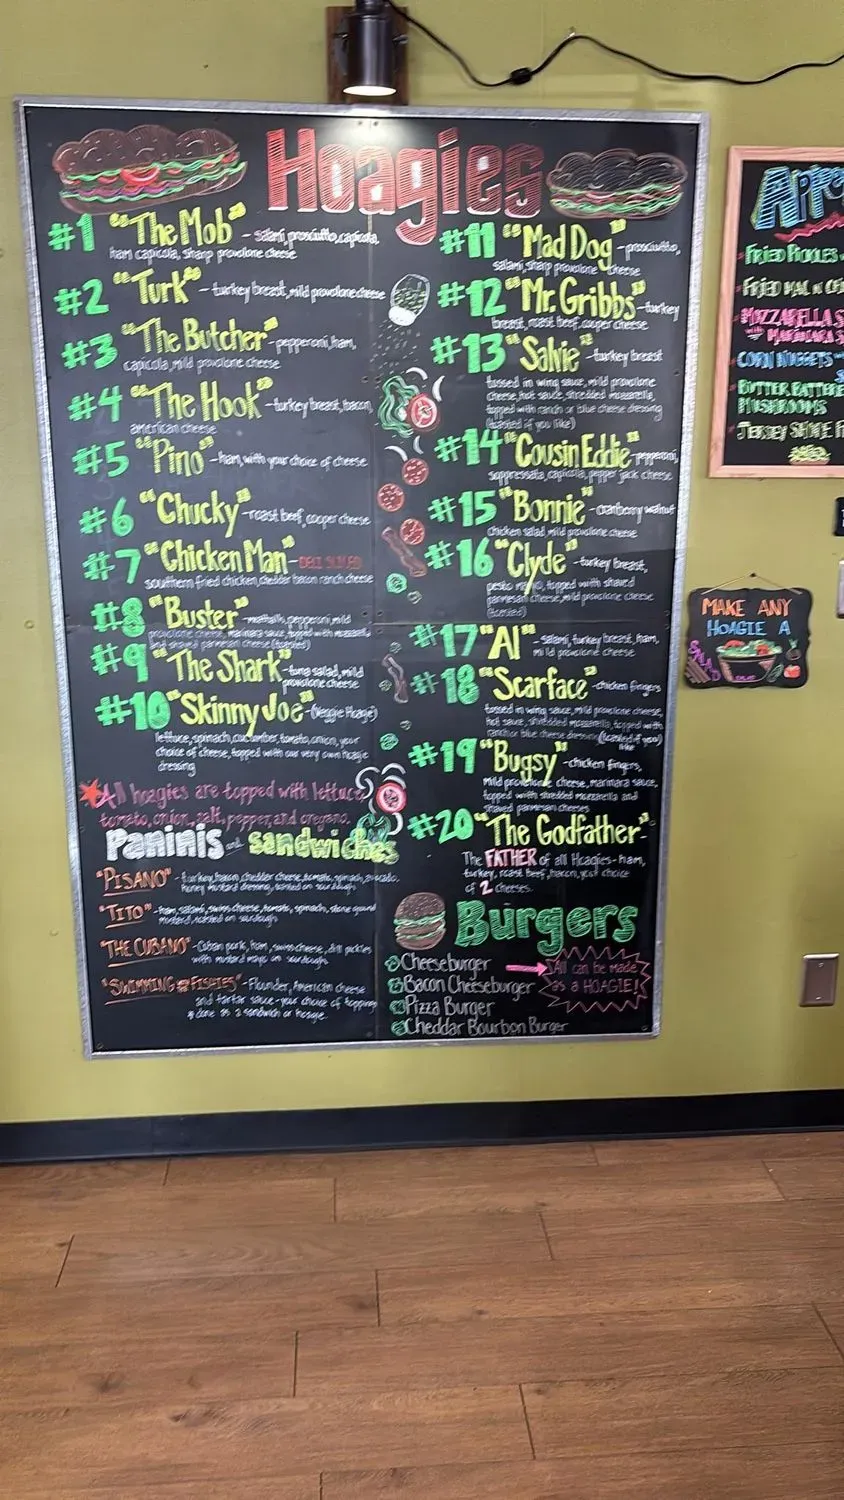 Hoagies
#1 "The Mob" - salami, prosciutto, capicola,
ham capicola, sharp provolone cheese
#2 "Turk" - turkey breast, mild provolone cheese
#3 "The Butcher" - pepperoni, ham,
capicola, mild provolone cheese
#4 "The Hook" - turkey breast, bacon,
american cheese
#5 "Pino" - ham, with your choice of cheese
#6 "Chucky" - roast beef, cooper cheese
#7 "Chicken Man" - DELI SLICED
southern fried chicken, cheddar bacon ranch cheese
#8 "Buster" - meatballs, pepperoni, mild
provolone cheese, marinara sauce, topped with mozzarella
and shaved parmesan cheese (toasted)
#9 "The Shark" - tuna salad, mild
provolone cheese
#10 "Skinny Joe" - (Veggie Hoagie)
lettuce, spinach, cucumber, tomato, onion, your
choice of cheese, topped with our very own hoagie
dressing
All hoagies are topped with lettuce,
tomato, onion, salt, pepper, and oregano.
Paninis and sandwiches
"PISANO" - turkey, bacon, cheddar cheese, tomato, spinach, avocado,
honey mustard dressing, toasted on sourdough
"TITO" - ham, salami, swiss cheese, tomato, spinach, stone ground
mustard, toasted on sourdough
"THE CUBANO" - Cuban pork, ham, swiss cheese, dill pickles
with mustard mayo on sourdough
"SWIMMING FISHIES" - Flounder, American cheese
and tartar sauce - your choice of toppings
done as a sandwich or hoagie.
#11 "Mad Dog" - prosciutto,
salami, sharp provolone cheese
#12 "Mr. Gribbs" - turkey
breast, roast beef, cooper cheese
#13 "Salvie" - turkey breast
tossed in wing sauce, mild provolone
cheese, hot sauce, shredded mozzarella,
topped with ranch or blue cheese dressing
(toasted if you like)
#14 "Cousin Eddie" - pepperoni,
soppressata, capicola, pepper jack cheese
#15 "Bonnie" - cranberry walnut
chicken salad, mild provolone cheese
#16 "Clyde" - turkey breast,
pesto mayo, topped with shaved
parmesan cheese, mild provolone cheese
(toasted)
#17 "Al" - salami, turkey breast, ham,
mild provolone cheese
#18 "Scarface" - chicken fingers
tossed in wing sauce, mild provolone cheese,
hot sauce, shredded mozzarella, topped with
ranch or blue cheese dressing (toasted if you
like)
#19 "Bugsy" - chicken fingers,
mild provolone cheese, marinara sauce,
topped with shredded mozzarella and
shaved parmesan cheeses
#20 "The Godfather"
The FATHER of all Hoagies - ham,
turkey, roast beef, bacon, your choice
of 2 cheeses.
Burgers
Cheeseburger
Bacon Cheeseburger
Pizza Burger
Cheddar Bourbon Burger
All can be made
as a HOAGIE!
FRIED PICKLES
MOZZARELLA
with MARINARA
CORN NUGGETS
BUTTER BATTERE
MUSHROOMS
MAKE ANY
HOAGIE A
SALAD